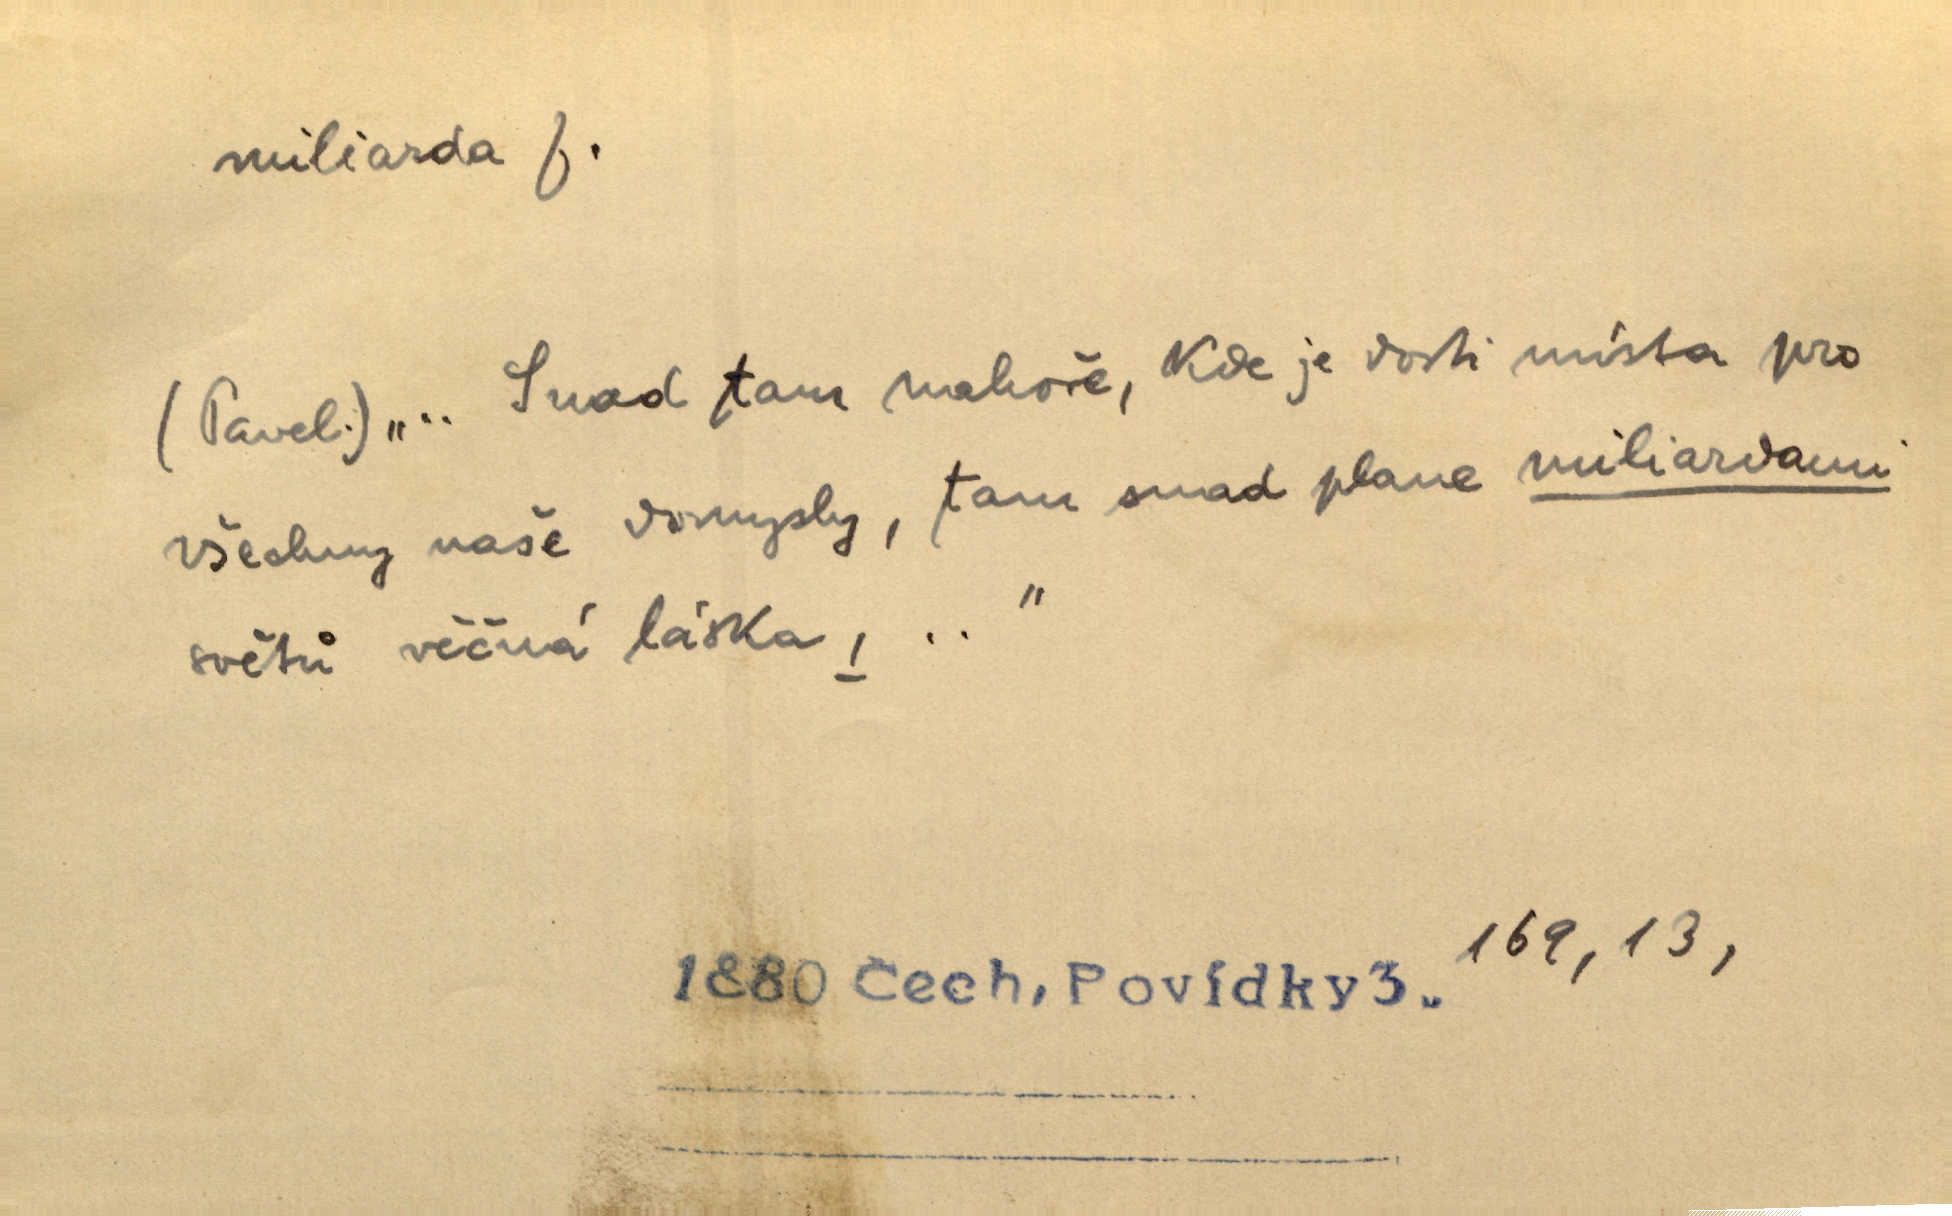 miliarda f.
(Pavel:) „.. Snad tam nahoře, kde je dosti místa pro
všechny naše domysly, tam snad plane miliardami
světů věčná láska, .. "
1880 Čech, Povídky 3.. 169, 13,